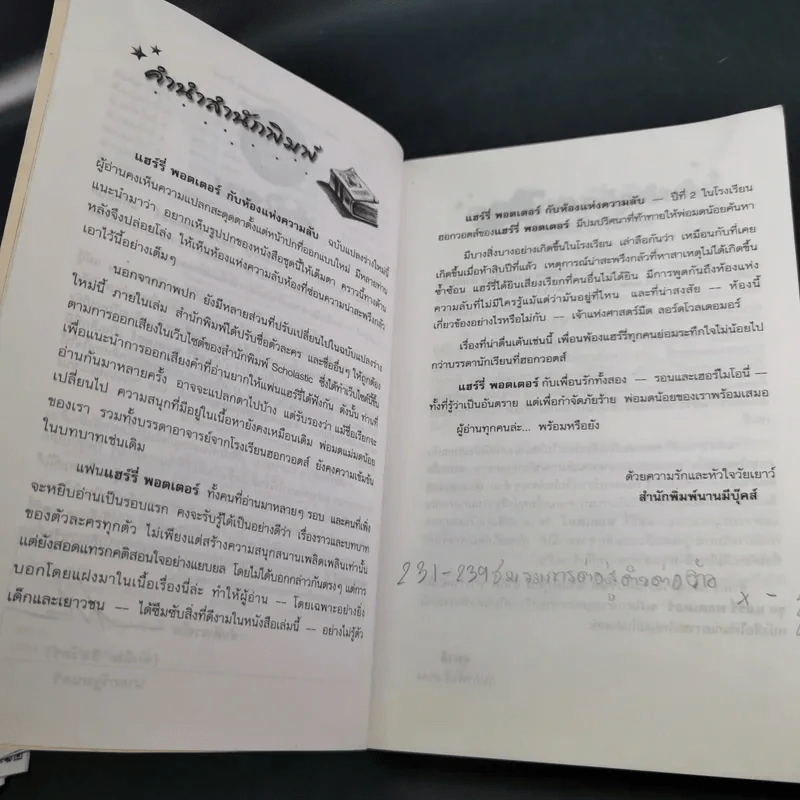 คำนำสำนักพิมพ์
แฮร์รี่ พอตเตอร์ กับห้องแห่งความลับ ฉบับแปลงร่างใหม่นี้
ผู้อ่านคงเห็นความแปลกสะดุดตาตั้งแต่หน้าปกที่ออกแบบใหม่ มีหลายท่าน
แนะนำมาว่า อยากเห็นรูปปกของหนังสือชุดนี้ให้เต็มตา คราวนี้ทางด้าน
หลังจึงปล่อยโล่ง ให้เห็นห้องแห่งความลับห้องที่ซ่อนความน่าสะพรึงกลัว
เอาไว้นี้อย่างเต็มๆ
นอกจากภาพปก ยังมีหลายส่วนที่ปรับเปลี่ยนไปในฉบับแปลงร่าง
ใหม่นี้ ภายในเล่ม สำนักพิมพ์ได้ปรับชื่อตัวละคร และชื่ออื่นๆ ให้ถูกต้อง
ตามการออกเสียงในเว็บไซต์ของสำนักพิมพ์ Scholastic ซึ่งได้ทำเว็บไซต์นี้ขึ้น
เพื่อแนะนำการออกเสียงคำที่อ่านยากให้แฟนแฮร์รี่ได้ฟังกัน ดังนั้น ท่านที่
อ่านกันมาหลายครั้ง อาจจะแปลกตาไปบ้าง แต่รับรองว่า แม้ชื่อเรียกจะ
เปลี่ยนไป ความสนุกที่มีอยู่ในเนื้อหายังคงเหมือนเดิม พ่อมดแม่มดน้อย
ของเรา รวมทั้งบรรดาอาจารย์จากโรงเรียนฮอกวอตส์ ยังคงความเข้มข้น
ในบทบาทเช่นเดิม
แฟนแฮร์รี่ พอตเตอร์ ทั้งคนที่อ่านมาหลายๆ รอบ และคนที่เพิ่ง
จะหยิบอ่านเป็นรอบแรก คงจะรับรู้ได้เป็นอย่างดีว่า เรื่องราวและบทบาท
ของตัวละครทุกตัว ไม่เพียงแต่สร้างความสนุกสนานเพลิดเพลินเท่านั้น
แต่ยังสอดแทรกคติสอนใจอย่างแยบยล โดยไม่ได้บอกกล่าวกันตรงๆ แต่การ
บอกโดยแฝงมาในเนื้อเรื่องนี่ล่ะ ทำให้ผู้อ่าน — โดยเฉพาะอย่างยิ่ง
เด็กและเยาวชน — ได้ซึมซับสิ่งที่ดีงามในหนังสือเล่มนี้ — อย่างไม่รู้ตัว
แฮร์รี่ พอตเตอร์ กับห้องแห่งความลับ — ปีที่ 2 ในโรงเรียน
ฮอกวอตส์ของแฮร์รี่ พอตเตอร์ มีปมปริศนาที่ท้าทายให้พ่อมดน้อยค้นหา
มีบางสิ่งบางอย่างเกิดขึ้นในโรงเรียน เล่าลือกันว่า เหมือนกับที่เคย
เกิดขึ้นเมื่อห้าสิบปีที่แล้ว เหตุการณ์น่าสะพรึงกลัวที่หาสาเหตุไม่ได้เกิดขึ้น
ซ้ำซ้อน แฮร์รี่ได้ยินเสียงเรียกที่คนอื่นไม่ได้ยิน มีการพูดกันถึงห้องแห่ง
ความลับที่ไม่มีใครรู้แม้แต่ว่ามันอยู่ที่ไหน และที่น่าสงสัย — ห้องนี้
เกี่ยวข้องอย่างไรหรือไม่กับ — เจ้าแห่งศาสตร์มืด ลอร์ดโวลเดอมอร์
เรื่องที่น่าตื่นเต้นเช่นนี้ เพื่อนพ้องแฮร์รี่ทุกคนย่อมระทึกใจไม่น้อยไป
กว่าบรรดานักเรียนที่ฮอกวอตส์
แฮร์รี่ พอตเตอร์ กับเพื่อนรักทั้งสอง — รอนและเฮอร์ไมโอนี่ —
ทั้งที่รู้ว่าเป็นอันตราย แต่เพื่อกำจัดภัยร้าย พ่อมดน้อยของเราพร้อมเสมอ
ผู้อ่านทุกคนล่ะ... พร้อมหรือยัง
ด้วยความรักและหัวใจวัยเยาว์
สำนักพิมพ์นานมีบุ๊คส์
231-239
x -